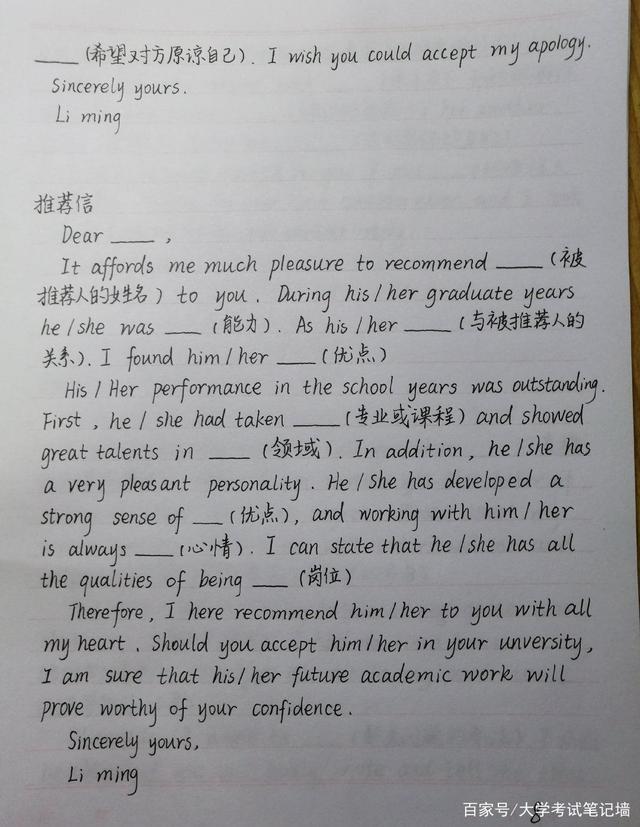 ____(希望对方原谅自己). I wish you could accept my apology.
Sincerely yours.
Li ming
推荐信
Dear ____,
It affords me much pleasure to recommend ____(被
推荐人的姓名) to you. During his/her graduate years
he/she was ____(能力). As his/her ____(与被推荐人的
关系). I found him/her ____(优点)
His/Her performance in the school years was outstanding.
First, he/she had taken ____(专业或课程) and showed
great talents in ____(领域). In addition, he/she has
a very pleasant personality. He/She has developed a
strong sense of ____(优点), and working with him/her
is always ____(心情). I can state that he/she has all
the qualities of being ____(岗位)
Therefore, I here recommend him/her to you with all
my heart. Should you accept him/her in your unversity,
I am sure that his/her future academic work will
prove worthy of your confidence.
Sincerely yours,
Li ming
8
百家号/大学考试笔记墙